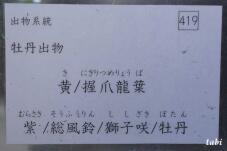 出物系統
419
牡丹出物
き にぎりつめりょうば
黄/握爪龍葉
むらさき そうふうりん ししざき ぼたん
紫/総風鈴/獅子咲/牡丹
tabi